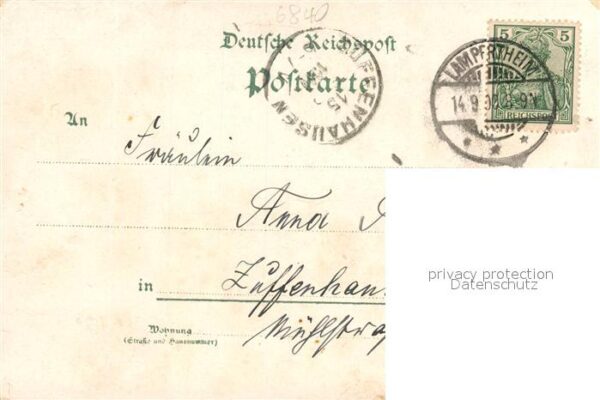 6840
Deutsche Reichspost
Postkarte
5 5
REICHSPOST
LAMPERTHEIM
14.9.
ZUFFENHAUSEN
An
Fräulein
Anna
privacy protection
Datenschutz
in Zuffenhau
Wohnung
(Straße und Hausnummer)
Mühlstra